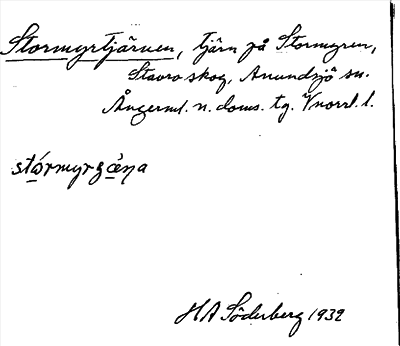 Stormyrtjärnen, tjärn på Stormyren,
Stavro skog, Anundsjö sn.
Ångerml. n. doms. tg. Vnorrl. l.
HA Söderberg 1932